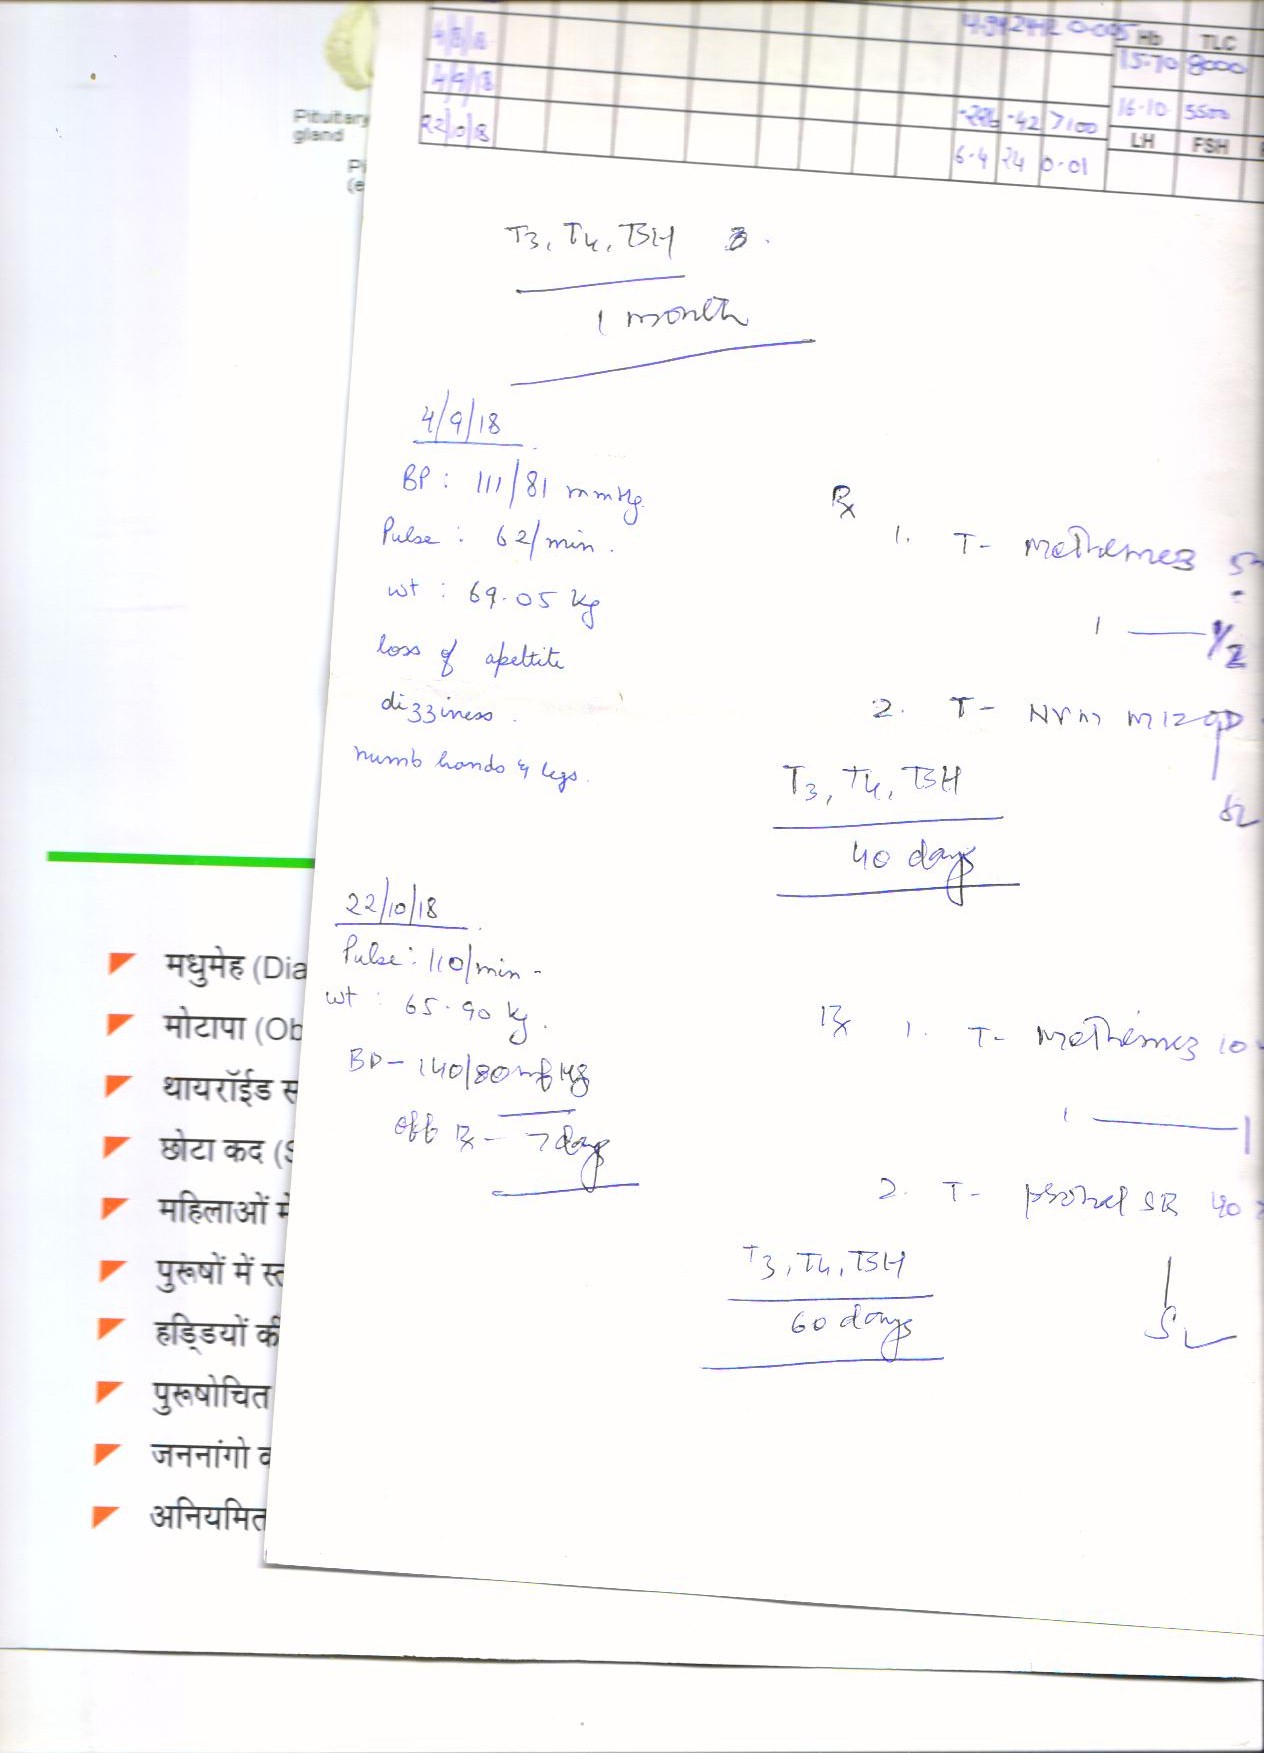 4/8/18 4.94 24.12 0.005 Hb TLC
15.70 8000
4/9/18
16.10 5500
22/10/18 .286 .42 >100 LH FSH
6.4 24 0.01
Pituitary
gland
T3, T4, TSH
1 month
4/9/18
BP : 111/81 mmHg.
Pulse : 62/min.
wt : 69.05 kg
loss of apeltite
dizziness.
numb hands & legs.
Rx
1. T- Methimez 5
1 — 1/2
2. T-
T3, T4, TSH
40 days
22/10/18
Pulse : 110/min -
wt : 65.90 kg.
BP - 140/80 mmHg
off Rx - 7 days
Rx 1. T- Methimez 10
1 — 1
2. T- SR 40
T3, T4, TSH
60 days
मधुमेह (Dia
मोटापा (Ob
थायरॉईड स
छोटा कद (S
महिलाओं मे
पुरूषों में स्त
हड्डियों की
पुरूषोचित
जननांगो व
अनियमित